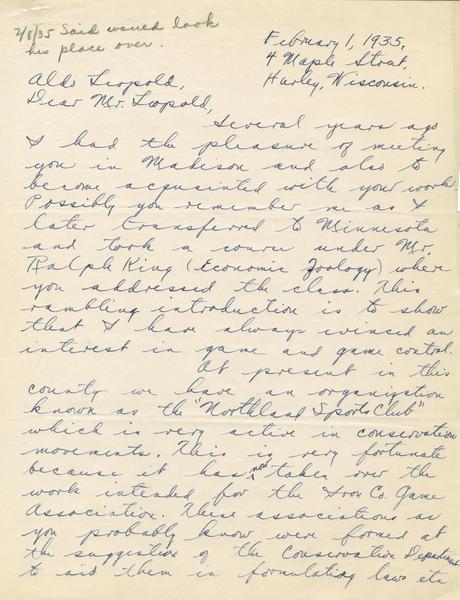 2/8/35 Said would look
his place over.
February 1, 1935,
4 Maple Street,
Hurley, Wisconsin.
Aldo Leopold,
Dear Mr. Leopold,
Several years ago
I had the pleasure of meeting
you in Madison and also to
become acquainted with your work.
Possibly you remember me as I
later transferred to Minnesota
and took a course under Mr.
Ralph King (Economic Zoology) where
you addressed the class. This
rambling introduction is to show
that I have always evinced an
interest in game and game control.
At present in this
county we have an organization
known as the "Northland Sports Club"
which is very active in conservation
movements. This is very fortunate
because it has now taken over the
work intended for the Iron Co. Game
Association. These associations as
you probably know were formed at
the suggestion of the Conservation Department
to aid them in formulating laws etc